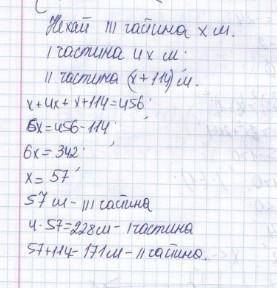 Нехай III частина х м.
I частина 4х м.
II частина (х+114) м.
х+4х+х+114=456
6х=456-114
6х=342
х=57
57 м - III частина
4·57=228м - I частина
57+114=171м - II частина.